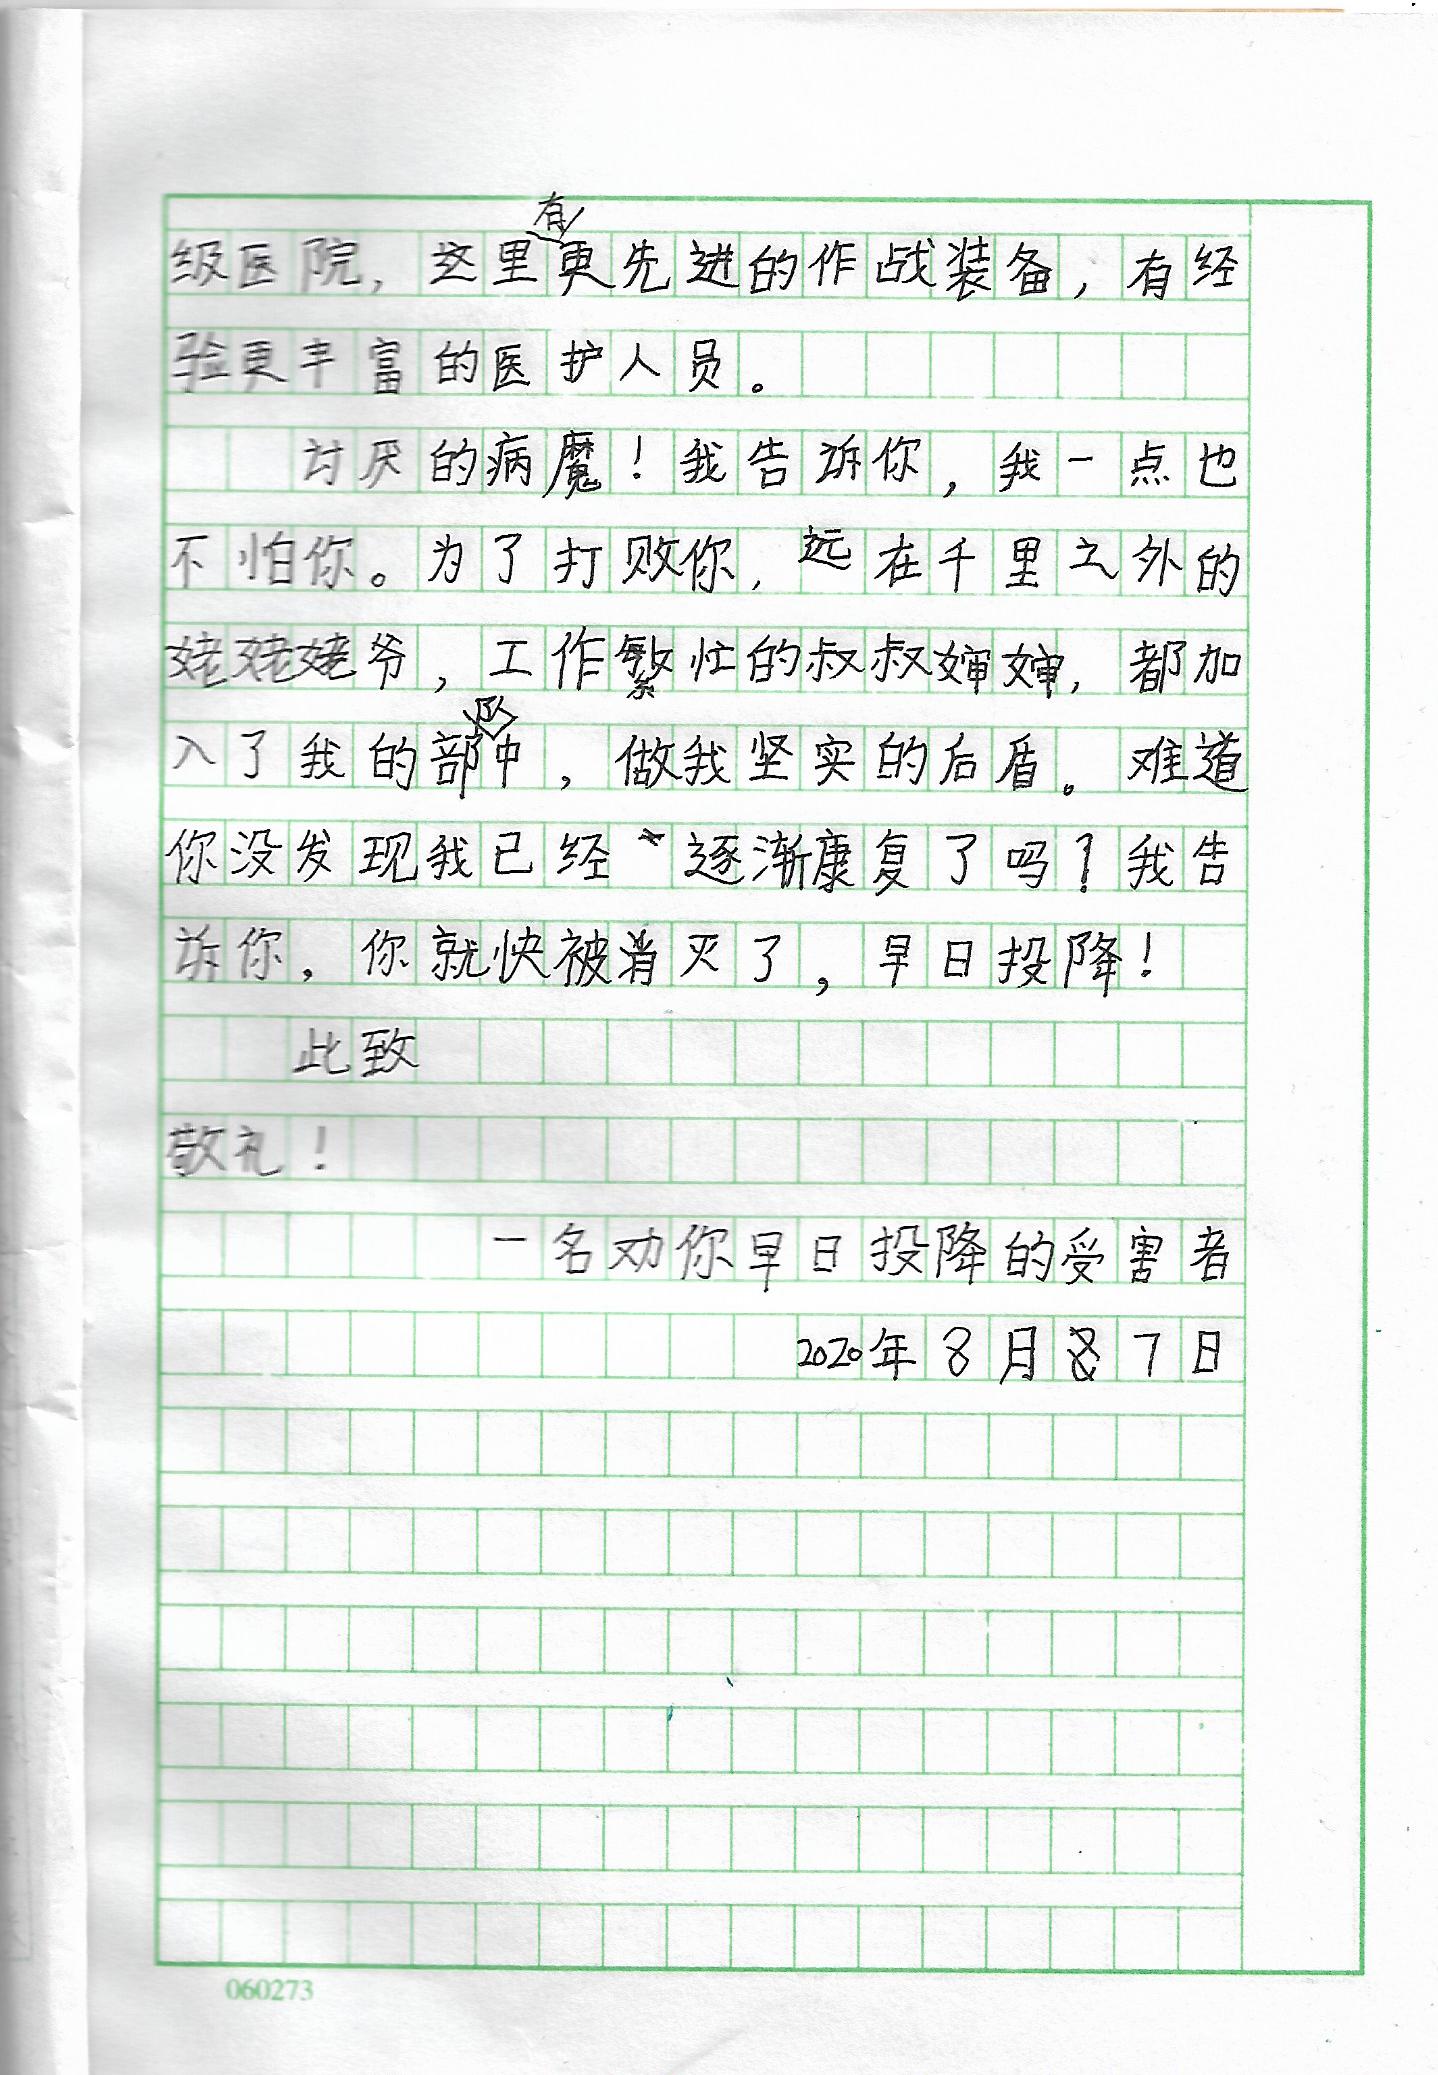 级医院，这里有更先进的作战装备，有经
验更丰富的医护人员。
讨厌的病魔！我告诉你，我一点也
不怕你。为了打败你，远在千里之外的
姥姥姥爷，工作繁忙的叔叔婶婶，都加
入了我的部队中，做我坚实的后盾。难道
你没发现我已经逐渐康复了吗？我告
诉你，你就快被消灭了，早日投降！
此致
敬礼！
一名劝你早日投降的受害者
2020年8月7日
060273